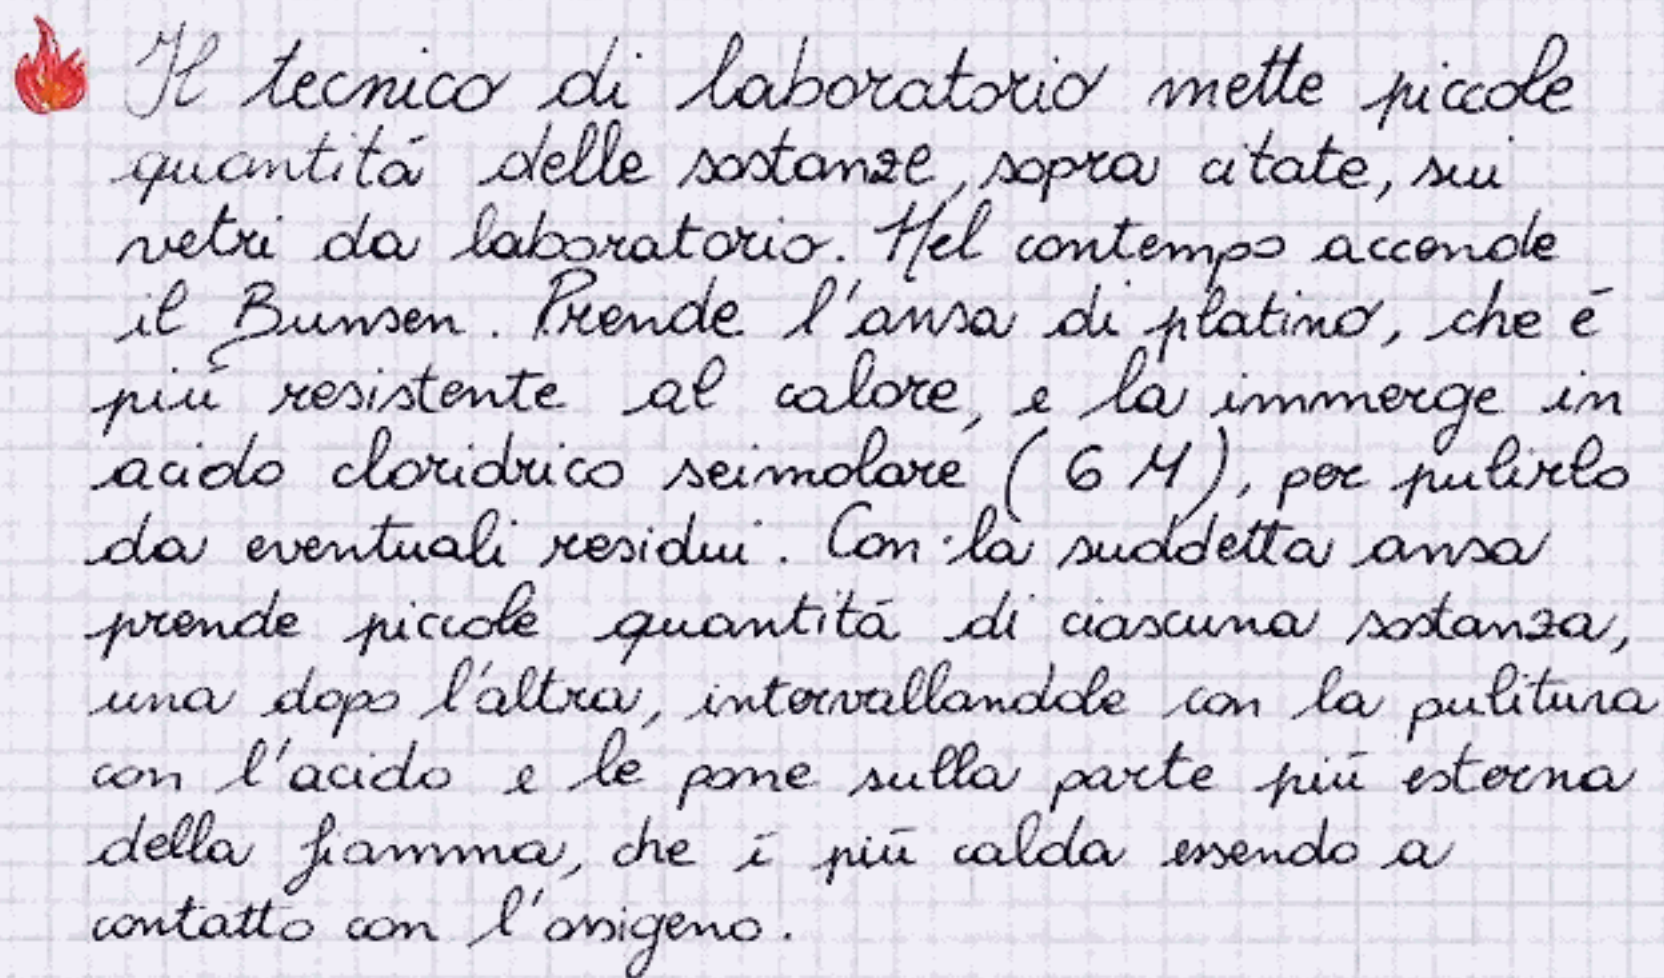 Il tecnico di laboratorio mette piccole
quantità delle sostanze, sopra citate, sui
vetri da laboratorio. Nel contempo accende
il Bunsen. Prende l'ansa di platino, che è
più resistente al calore, e la immerge in
acido cloridrico seimolare (6 M), per pulirlo
da eventuali residui. Con la suddetta ansa
prende piccole quantità di ciascuna sostanza,
una dopo l'altra, intervallandole con la pulitura
con l'acido e le pone sulla parte più esterna
della fiamma, che è più calda essendo a
contatto con l'ossigeno.